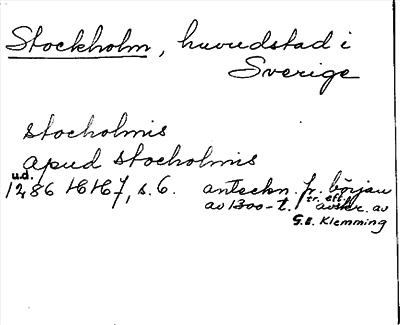 Stockholm, huvudstad i
Sverige
stocholmis
apud stocholmis
u.d.
1286 HH7, s. 6. anteckn. fr. börjau
av 1300-t. tr. eft. avskr. av
G.E. Klemming